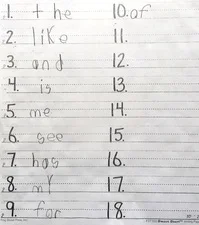 1. the
2. like
3. and
4. is
5. me
6. see
7. has
8. my
9. for
10. of
11.
12.
13.
14.
15.
16.
17.
18.